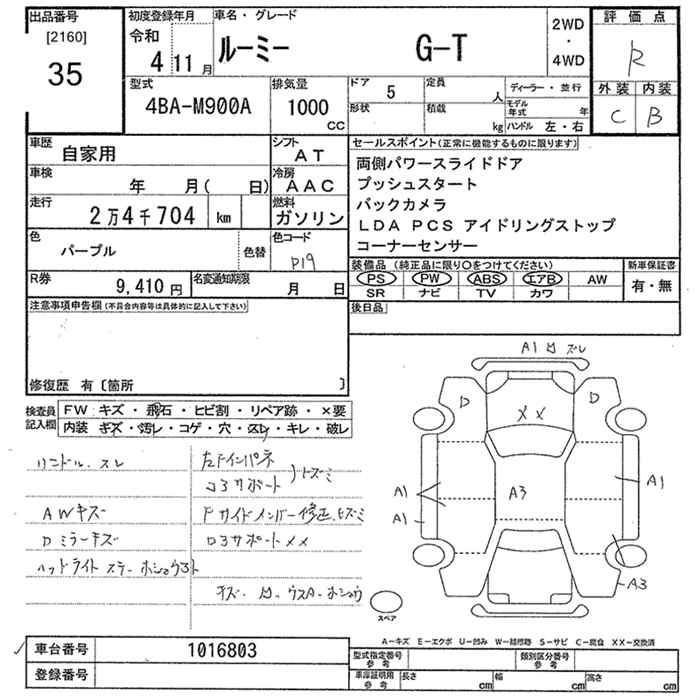 出品番号
[2160]
35
初度登録年月
令和
4 11月
車名・グレード
ルーミー G-T
2WD
・
4WD
評価点
R
外装 内装
C B
型式
4BA-M900A
排気量
1000
CC
ドア 5
形状
定員 人
積載 kg
ディーラー・並行
モデル年式 年
ハンドル 左・右
車歴
自家用
シフト
AT
車検
年 月( 日)
冷房
AAC
走行
2万4千704 km
燃料
ガソリン
色
パープル
色替
色コード
P19
R券
9,410円
名変通知期限
月 日
セールスポイント(正常に機能するものに限ります)
両側パワースライドドア
プッシュスタート
バックカメラ
LDA PCS アイドリングストップ
コーナーセンサー
装備品 (純正品に限り○をつけてください)
PS PW ABS エアB AW
SR ナビ TV カワ
新車保証書
有・無
後日品
注意事項申告欄(不具合内容等は具体的に記入して下さい)
修復歴 有〔箇所 〕
検査員
記入欄
FW:キズ・飛石・ヒビ割・リペア跡・×要
内装 キズ・汚レ・コゲ・穴・スレ・キレ・破レ
ハンドル、スレ
AWキズ
Dミラーキズ
ヘッドライト
左Fインパネ
コアサポート
トズミ
Fサイドメンバー修正、ヒズミ
コアサポートXX
キズ・凹・ウスA・
A1 凹 ズレ
D
D
XX
A3
A1
A1
A1
A3
スペア
A-キズ E-エクボ U-凹み W-補修跡 S-サビ C-腐食 XX-交換済
車台番号
1016803
登録番号
型式指定番号
参考
類別区分番号
参考
車庫証明用
参考
長さ cm
幅 cm
高さ cm